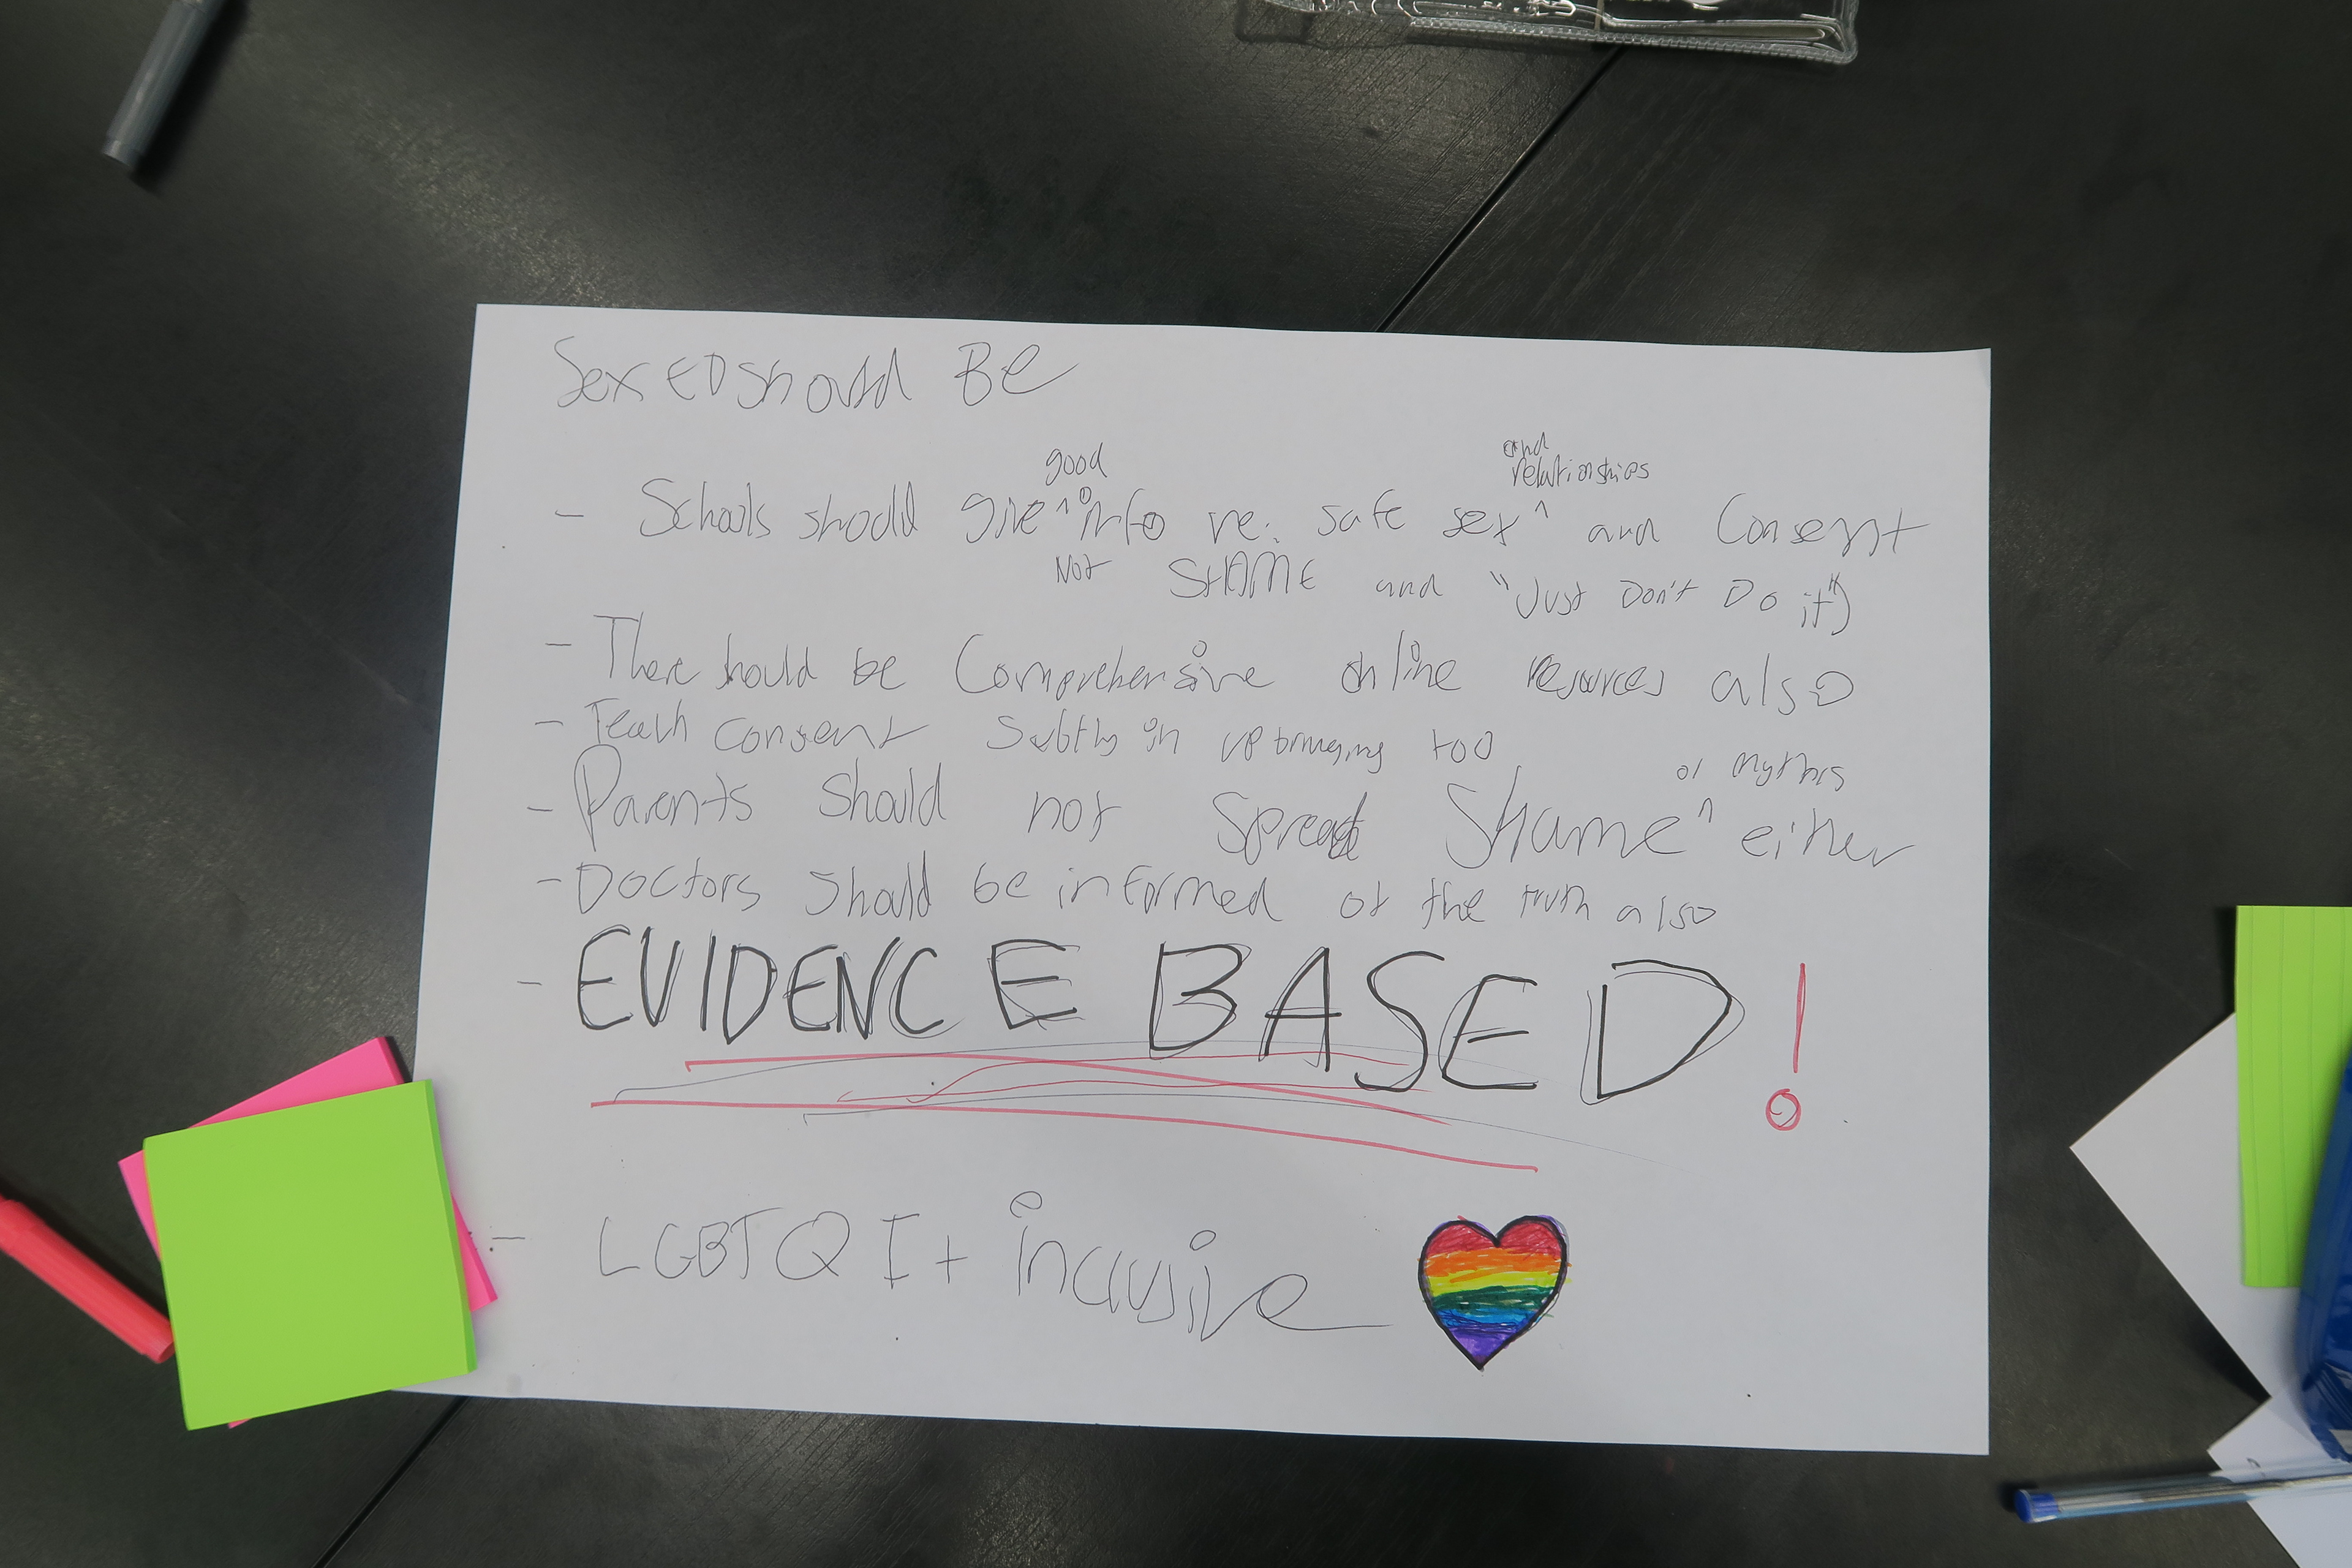 Sex ED should Be
good and relationships
- Schools should give ^ info re. safe sex ^ and Consent
Not SHAME and "Just Don't Do it")
- There should be Comprehensive online resources also
- Teach consent subtly in upbringing too
or myths
- Parents should not spread Shame ^ either
- Doctors should be informed of the truth also
- EVIDENCE BASED!
- LGBTQI+ inclusive